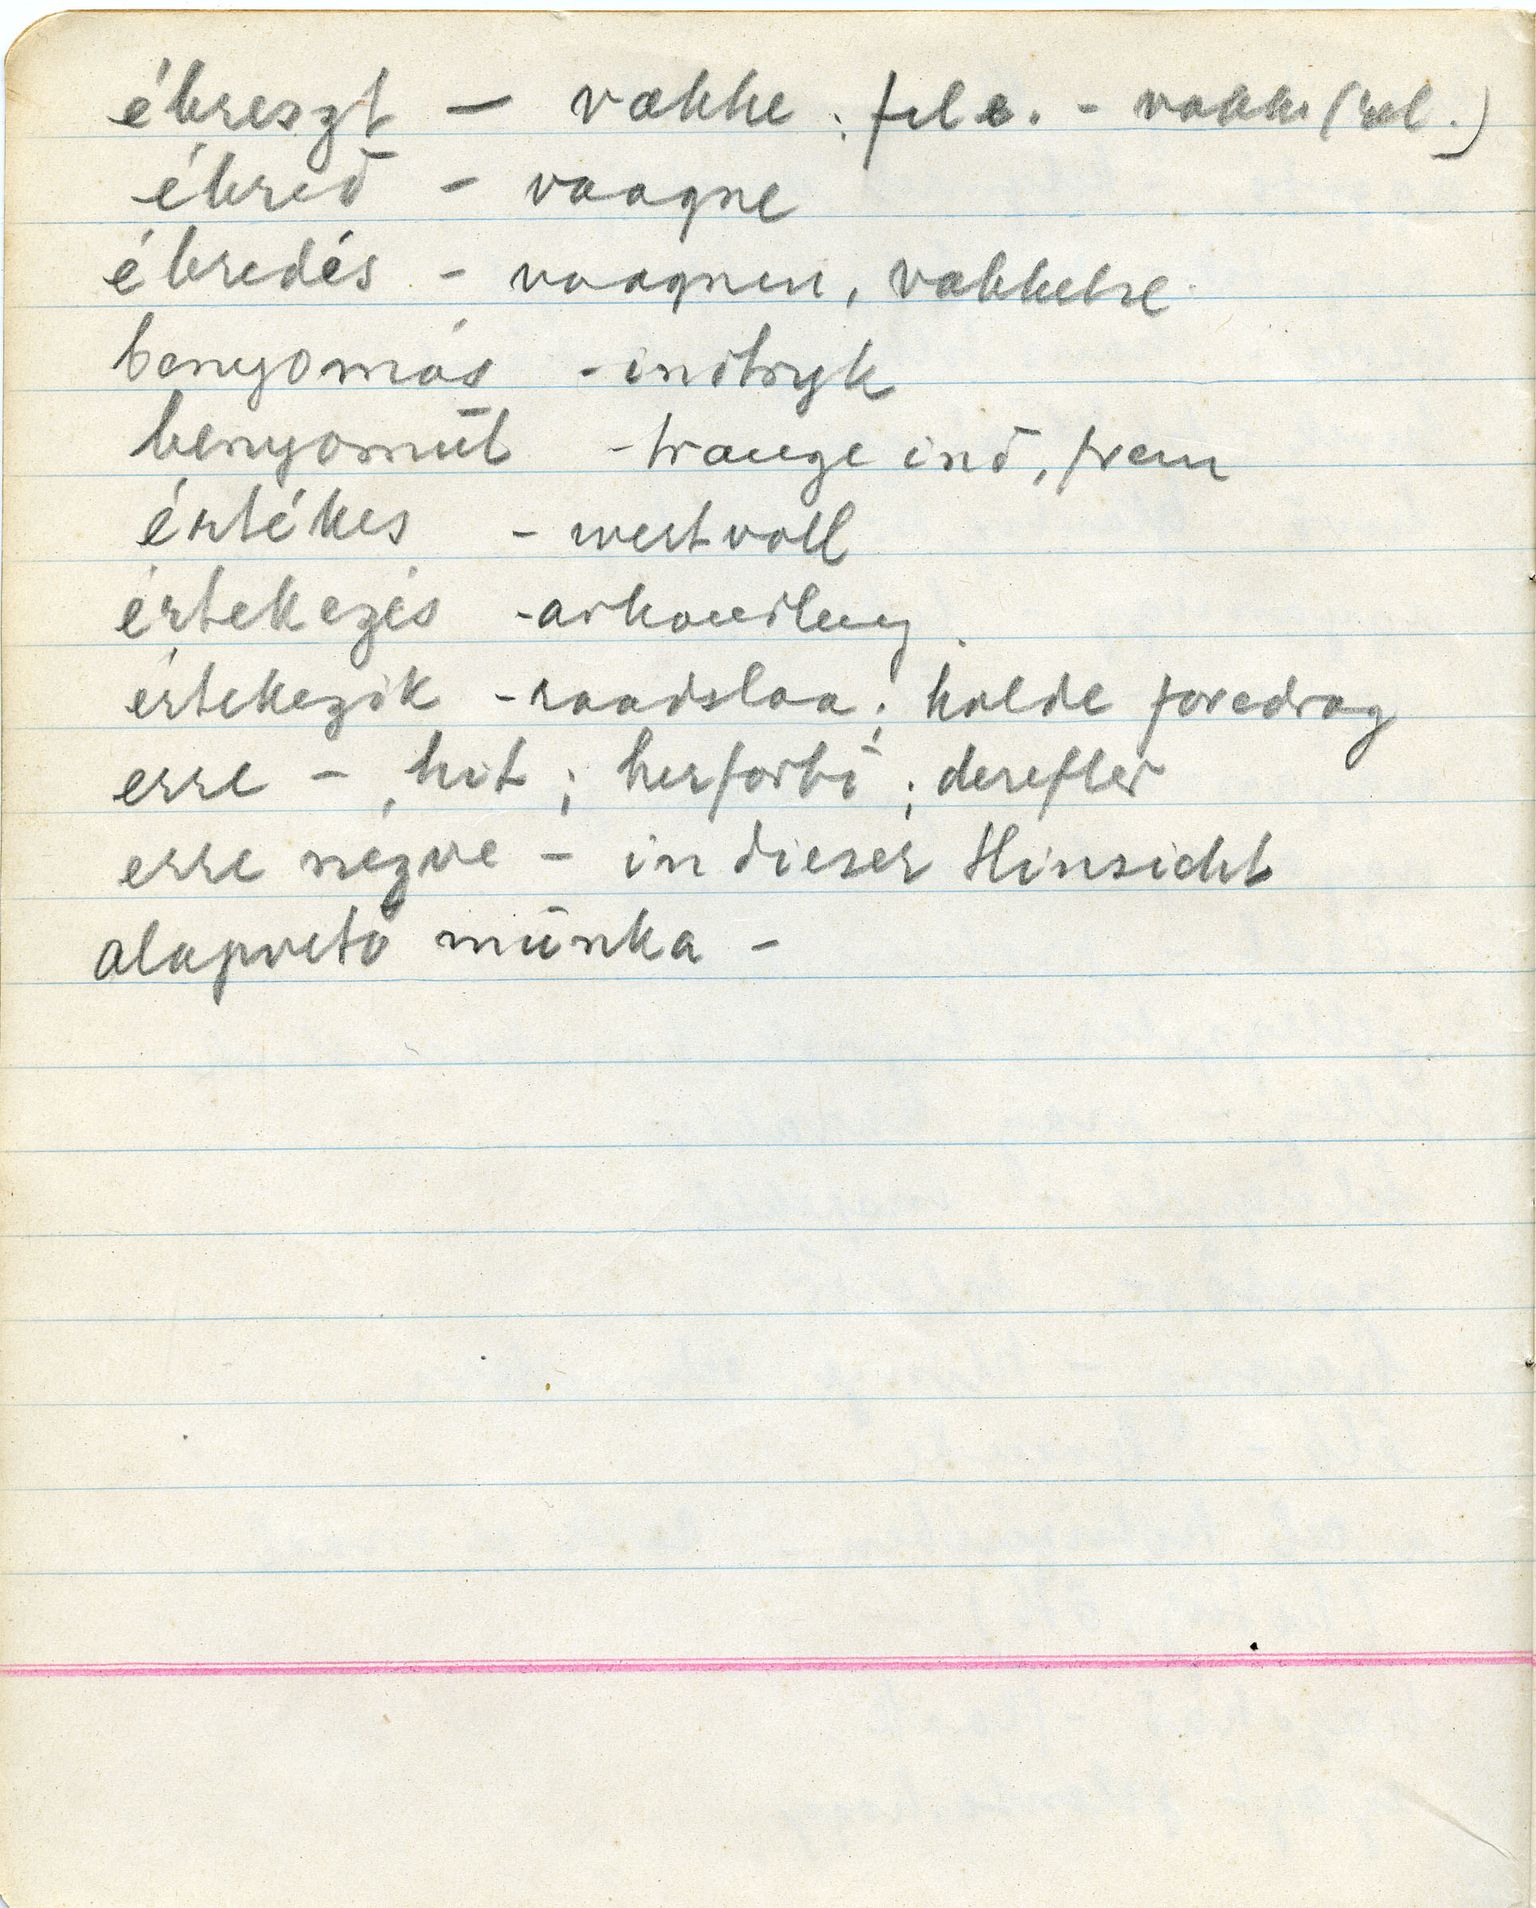 ébreszt – vække: fel e. – vække (rel.)
ébred – vaagne
ébredés – vaagnen, vækkelse
benyomás – indtryk
benyomul – trænge ind, frem
értékes – wertvoll
értekezés – avhandlung.
értekezik – raadslaa; holde foredrag
erre – hit; herforbi; derefter
erre nézve – in dieser Hinsicht
alapvető munka –